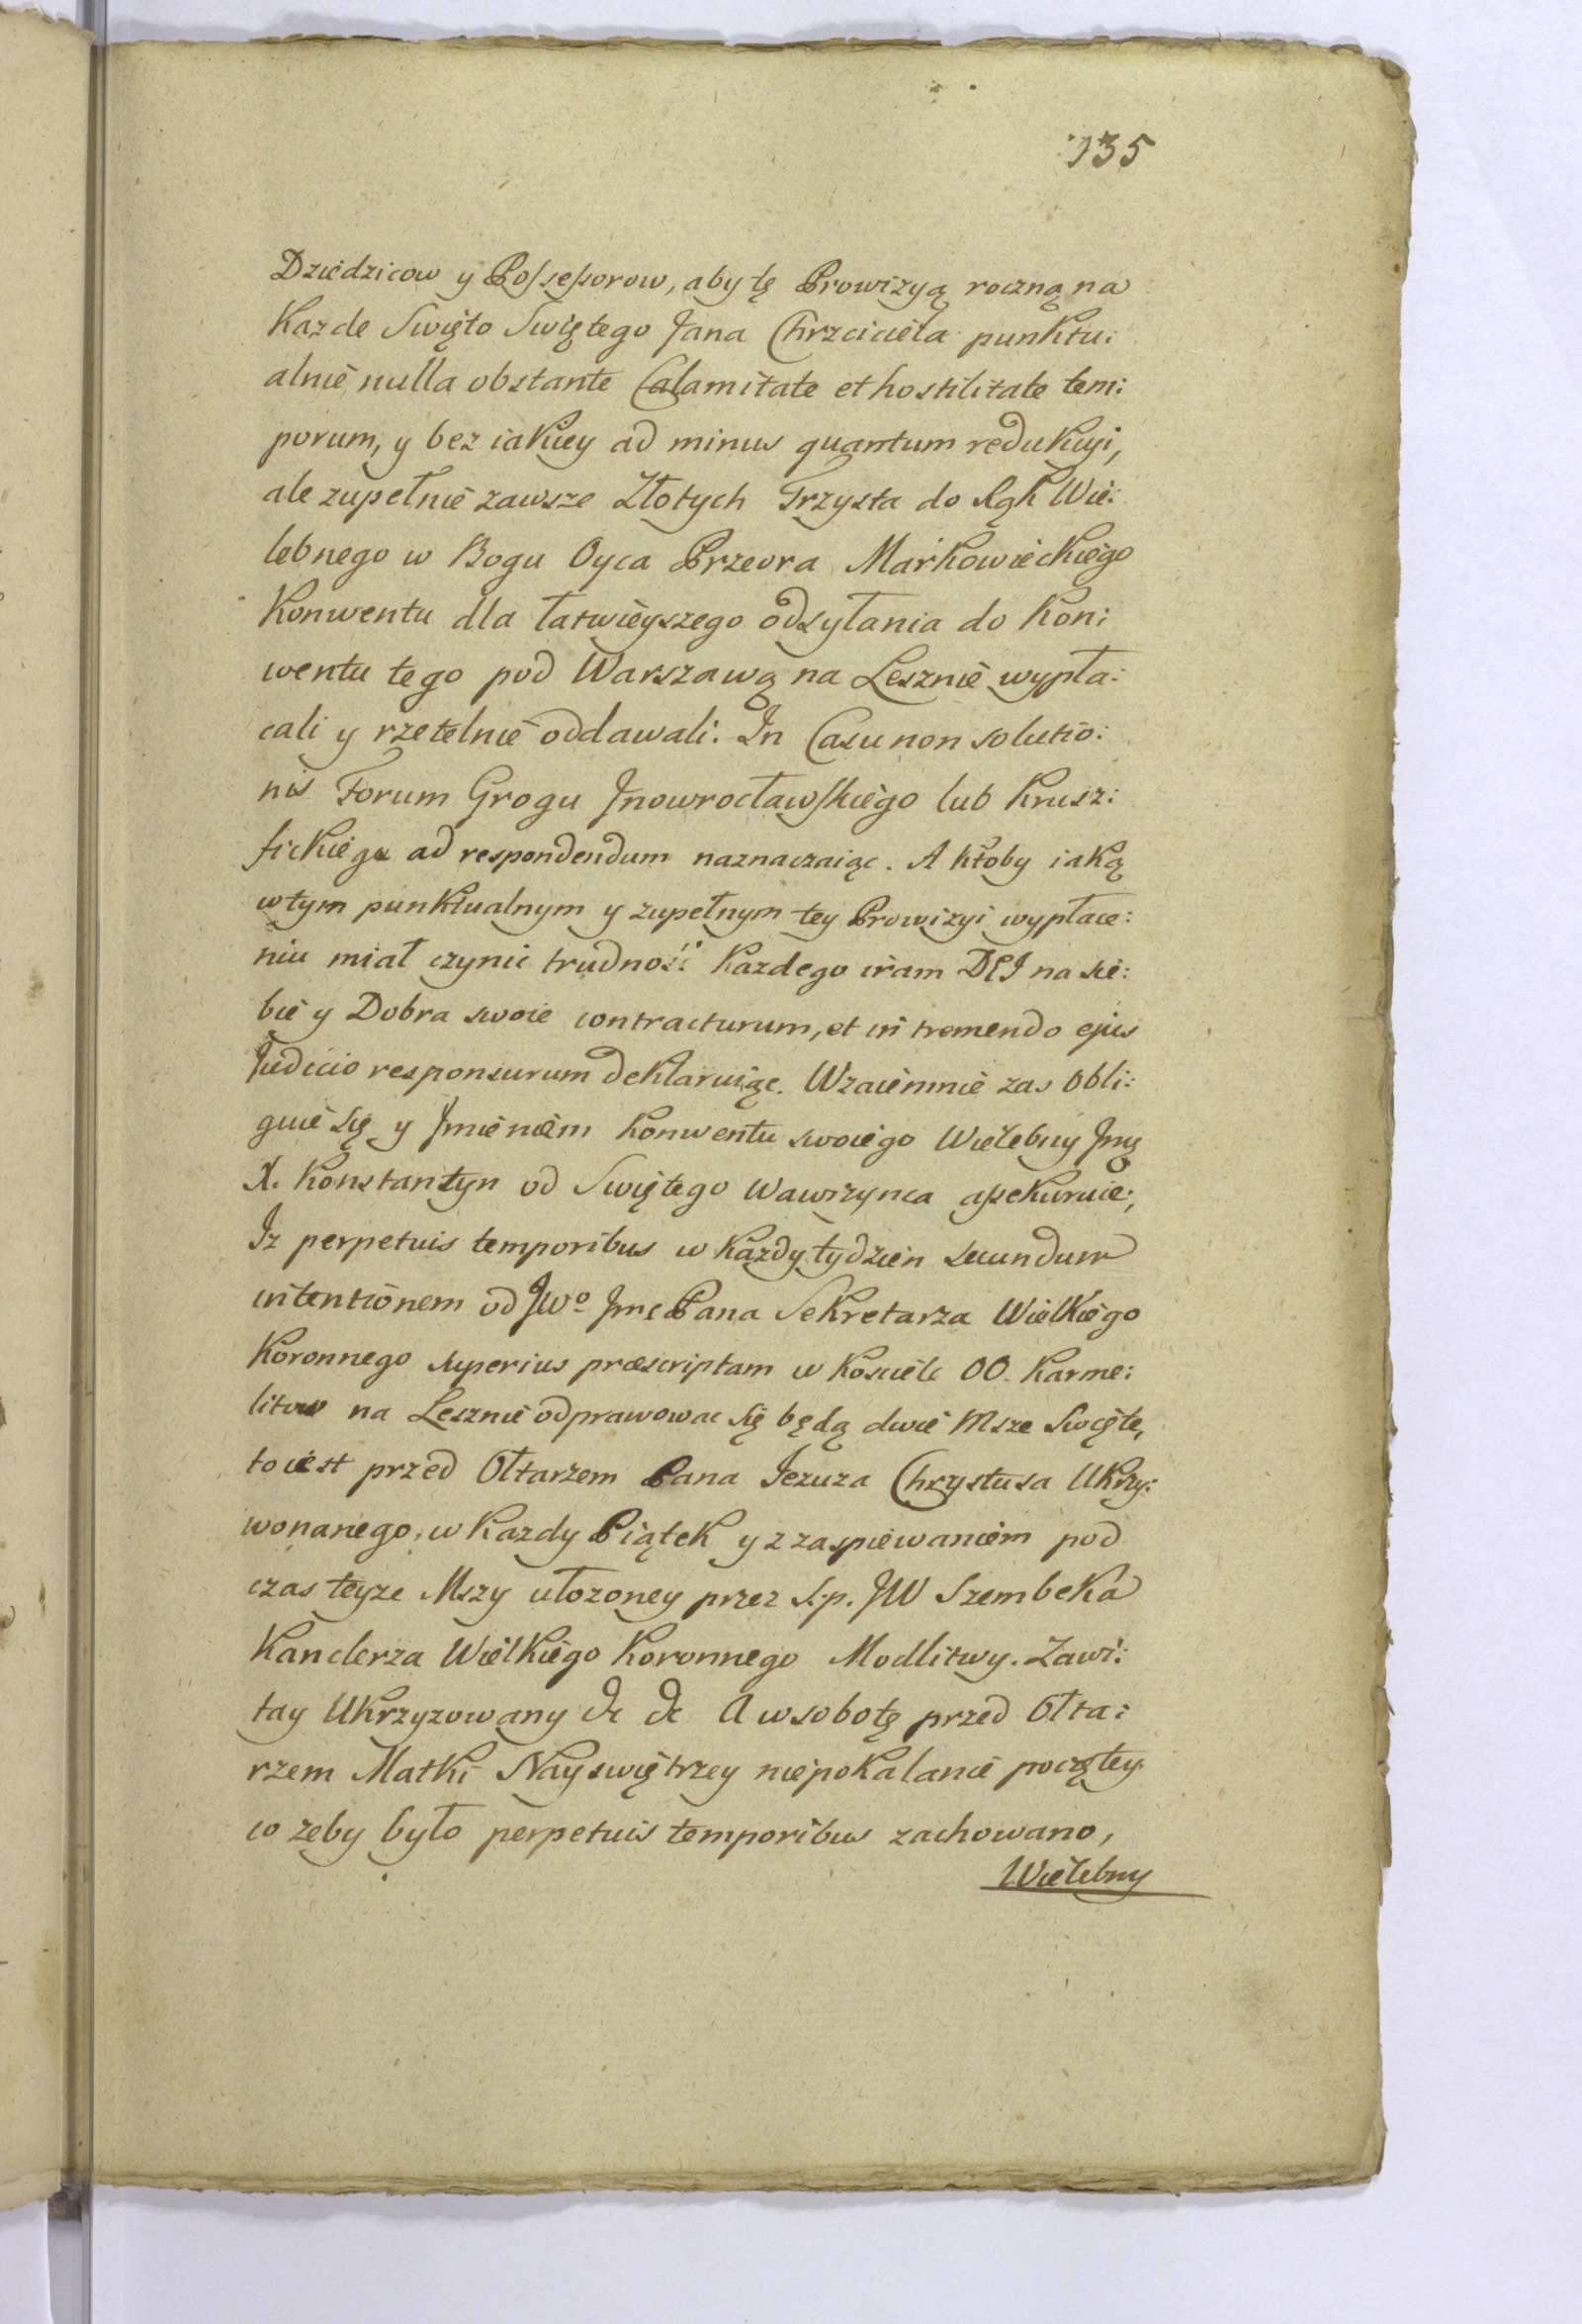 135
Dziedzicow y Possessorow, aby tę Prowizyą roczną na
Kazde Swięto Swiętego Jana Chrzciciela punktu:
alnie nulla obstante Calamitate et hostilitate tem:
porum, y bez iakiey ad minus quantum redukcyi,
ale zupełnie zawsze Złotych Trzysta do Rąk Wie:
lebnego w Bogu Oyca Przeora Markowieckiego
Konwentu dla łatwieyszego odsyłania do Kon:
wentu tego pod Warszawą na Lesznie wypła:
cali y rzetelnie oddawali. In Casu non solutio:
nis Forum Grogu Jnowrocławskiego lub Krusz:
fickiego ad respondendum naznaczaiąc. A ktoby iaką
w tym punktualnym y zupełnym tey Prowizyi wypłace:
niu miał czynic trudność Kazdego iram DEI na sie:
bie y Dobra swoie contracturum, et in tremendo ejus
Judicio responsurum deklaruiąc. Wzaiemnie zas Obli:
guie się y Jmieniem Konwentu swoiego Wielebny Jmę
X. Konstantyn od Swiętego Wawrzynca assekuruie;
Jz perpetuis temporibus w Kazdy tydzien secundum
intentionem od JWo Jmc Pana Sekretarza Wielkiego
Koronnego superius præscriptam w Kosciele OO. Karme:
litow na Lesznie odprawowac się będą dwie Msze Swięte,
to iest przed Ołtarzem Pana Jezuza Chrystusa Ukrzy:
wonanego, w Kazdy Piątek y z zaspiewaniem pod
czas teyze Mszy ułozoney przez S.p. JW Szembeka
Kanclerza Wielkiego Koronnego Modlitwy. Zawi:
tay Ukrzyzowany &c &c A w sobotę przed Ołta:
rzem Matki Nayswiętrzey niepokalanie poczętey
co zeby było perpetuis temporibus zachowano,
Wielebny